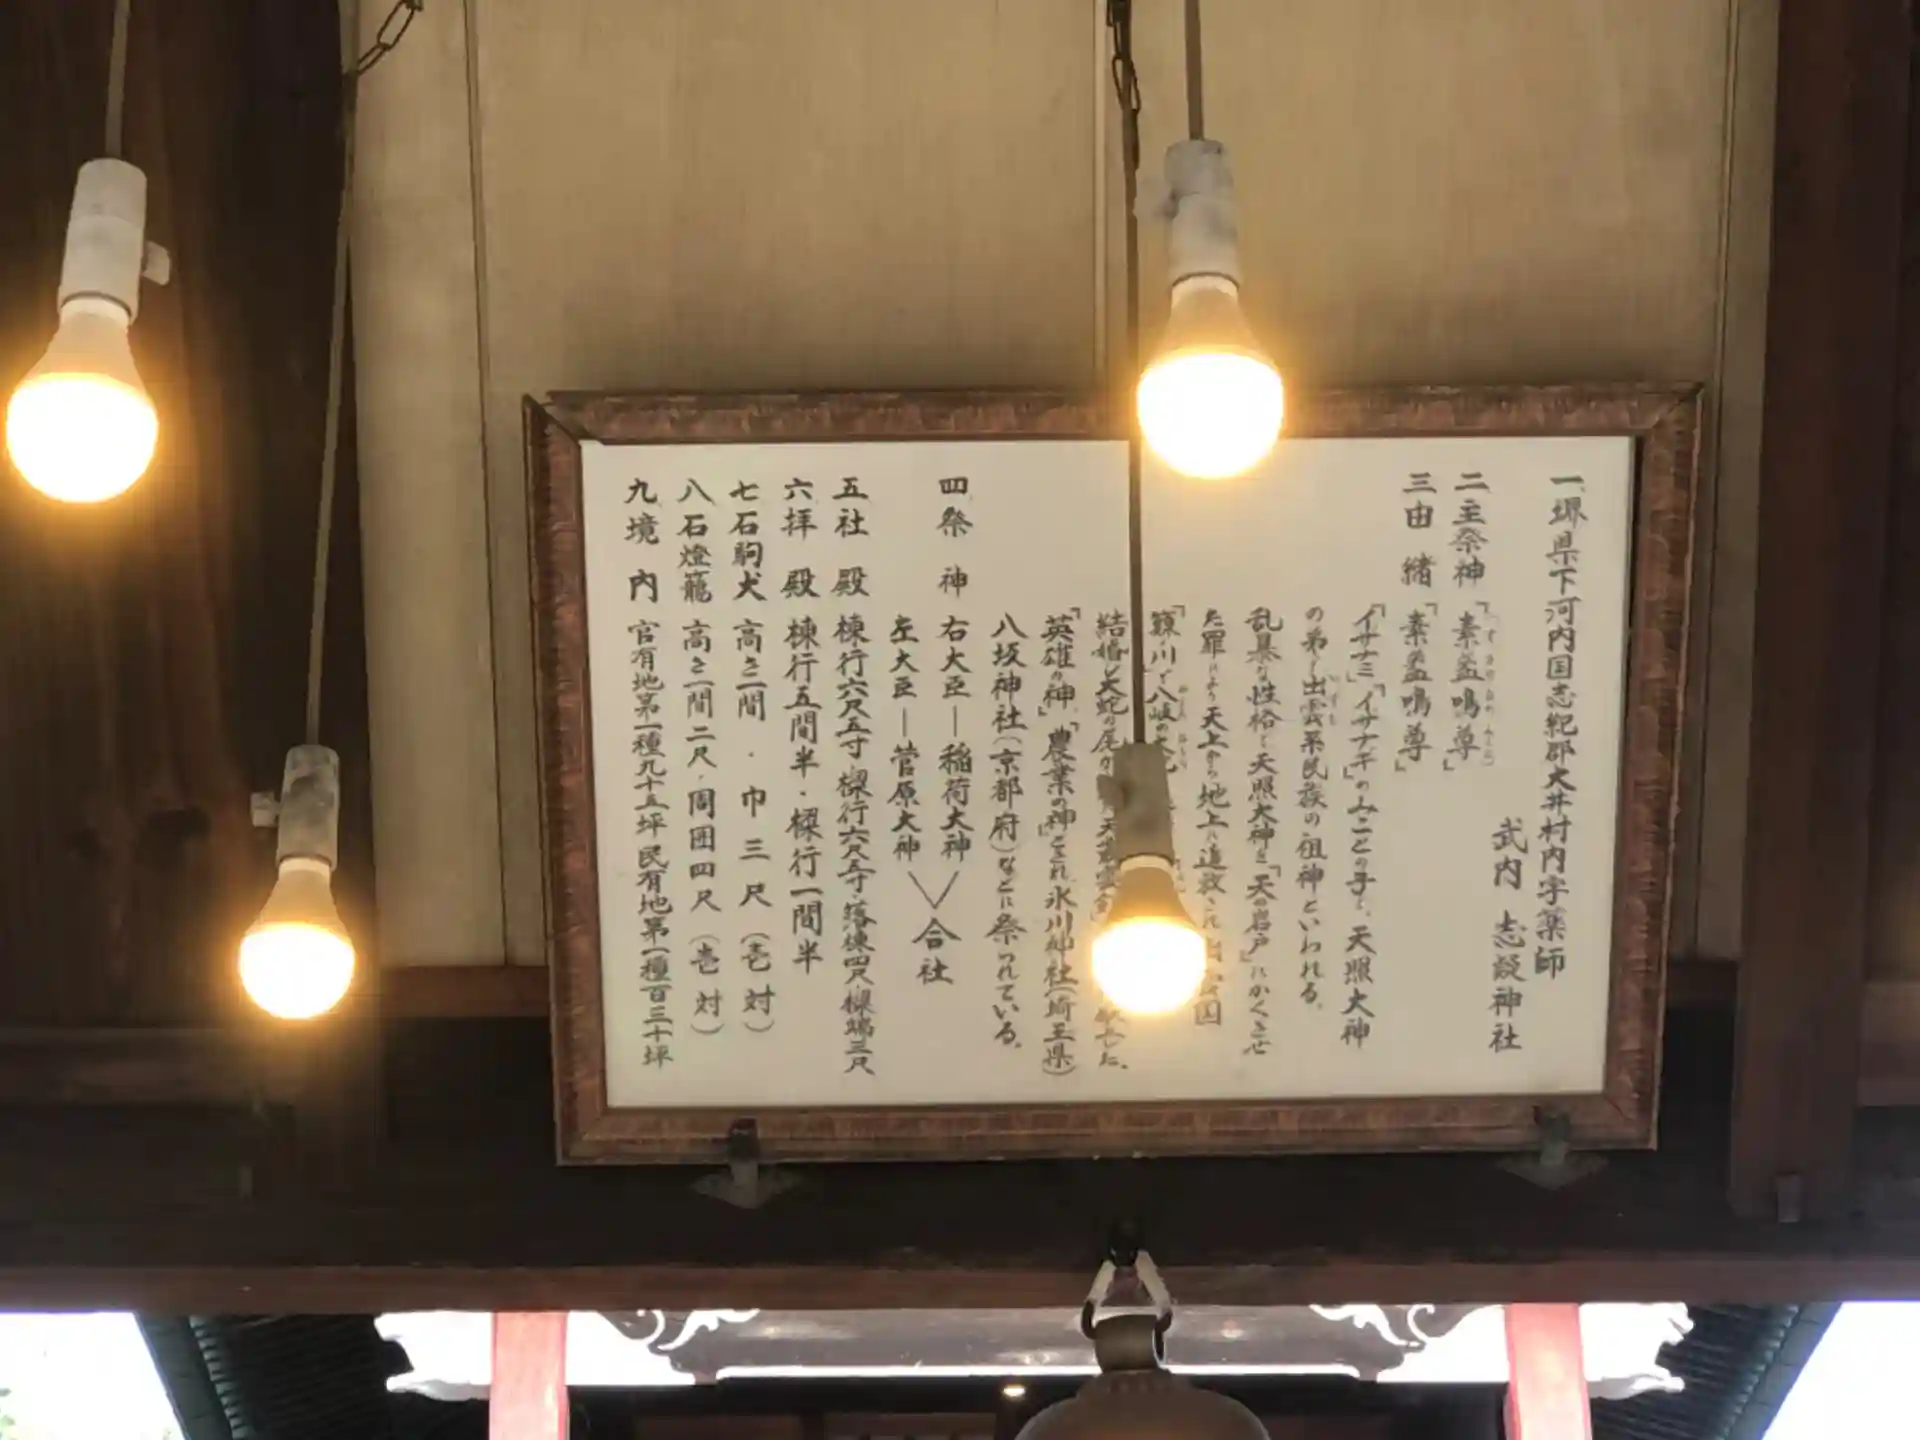 一、堺県下河内国志紀郡大井村内字薬師
武内 志疑神社
二主祭神「素盞嗚尊」
三由 緒「素盞嗚尊」
「イザナミ」「イザナギ」のみことの子で、天照大神
の弟で出雲系民族の祖神といわれる。
乱暴な性格で天照大神を「天の岩戸」にかくさせ
た罪により天上から地上に追放され出雲国
「簸ノ川」で八岐の大蛇
結婚し大蛇の尾から 天叢雲剣 した。
「英雄の神」「農業の神」とされ氷川神社(埼玉県)
八坂神社(京都府)などに祭られている。
四祭 神 右大臣―稲荷大神
左大臣―菅原大神
合社
五社 殿 棟行六尺五寸・樑行六尺五寸・落棟四尺・樑端三尺
六拝 殿 棟行五間半・樑行一間半
七石駒犬 高さ二間・巾三尺(壱対)
八石燈籠 高さ一間二尺・周囲四尺(壱対)
九境 内 官有地第一種九十五坪 民有地第一種百三十坪